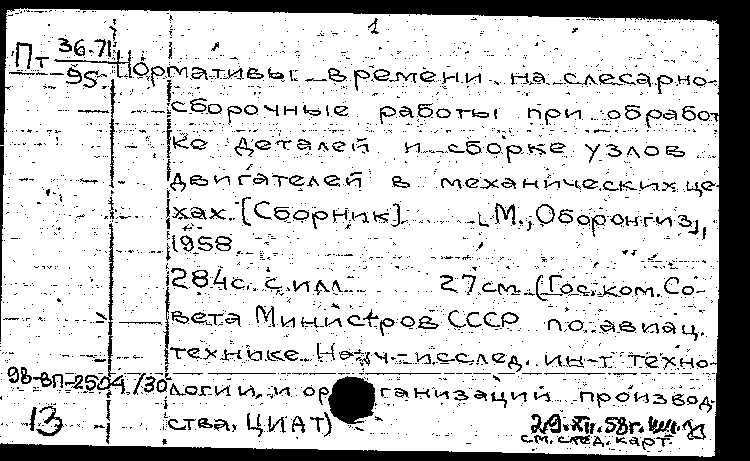 1
Пт 36.71
95
Нормативы времени на слесарно-
сборочные работы при обработ
ке деталей и сборке узлов
двигателей в механических це-
хах. [Сборник] [М., Оборонгиз],
1958
284с. с илл. 27см (Гос.ком.Со-
вета Министров СССР по авиац.
технике. Науч.-исслед. ин-т техно-
98-ВП-2504/30 логии и организации производ-
13 ства, ЦИАТ)
29.XII.58г.
см. след. карт.